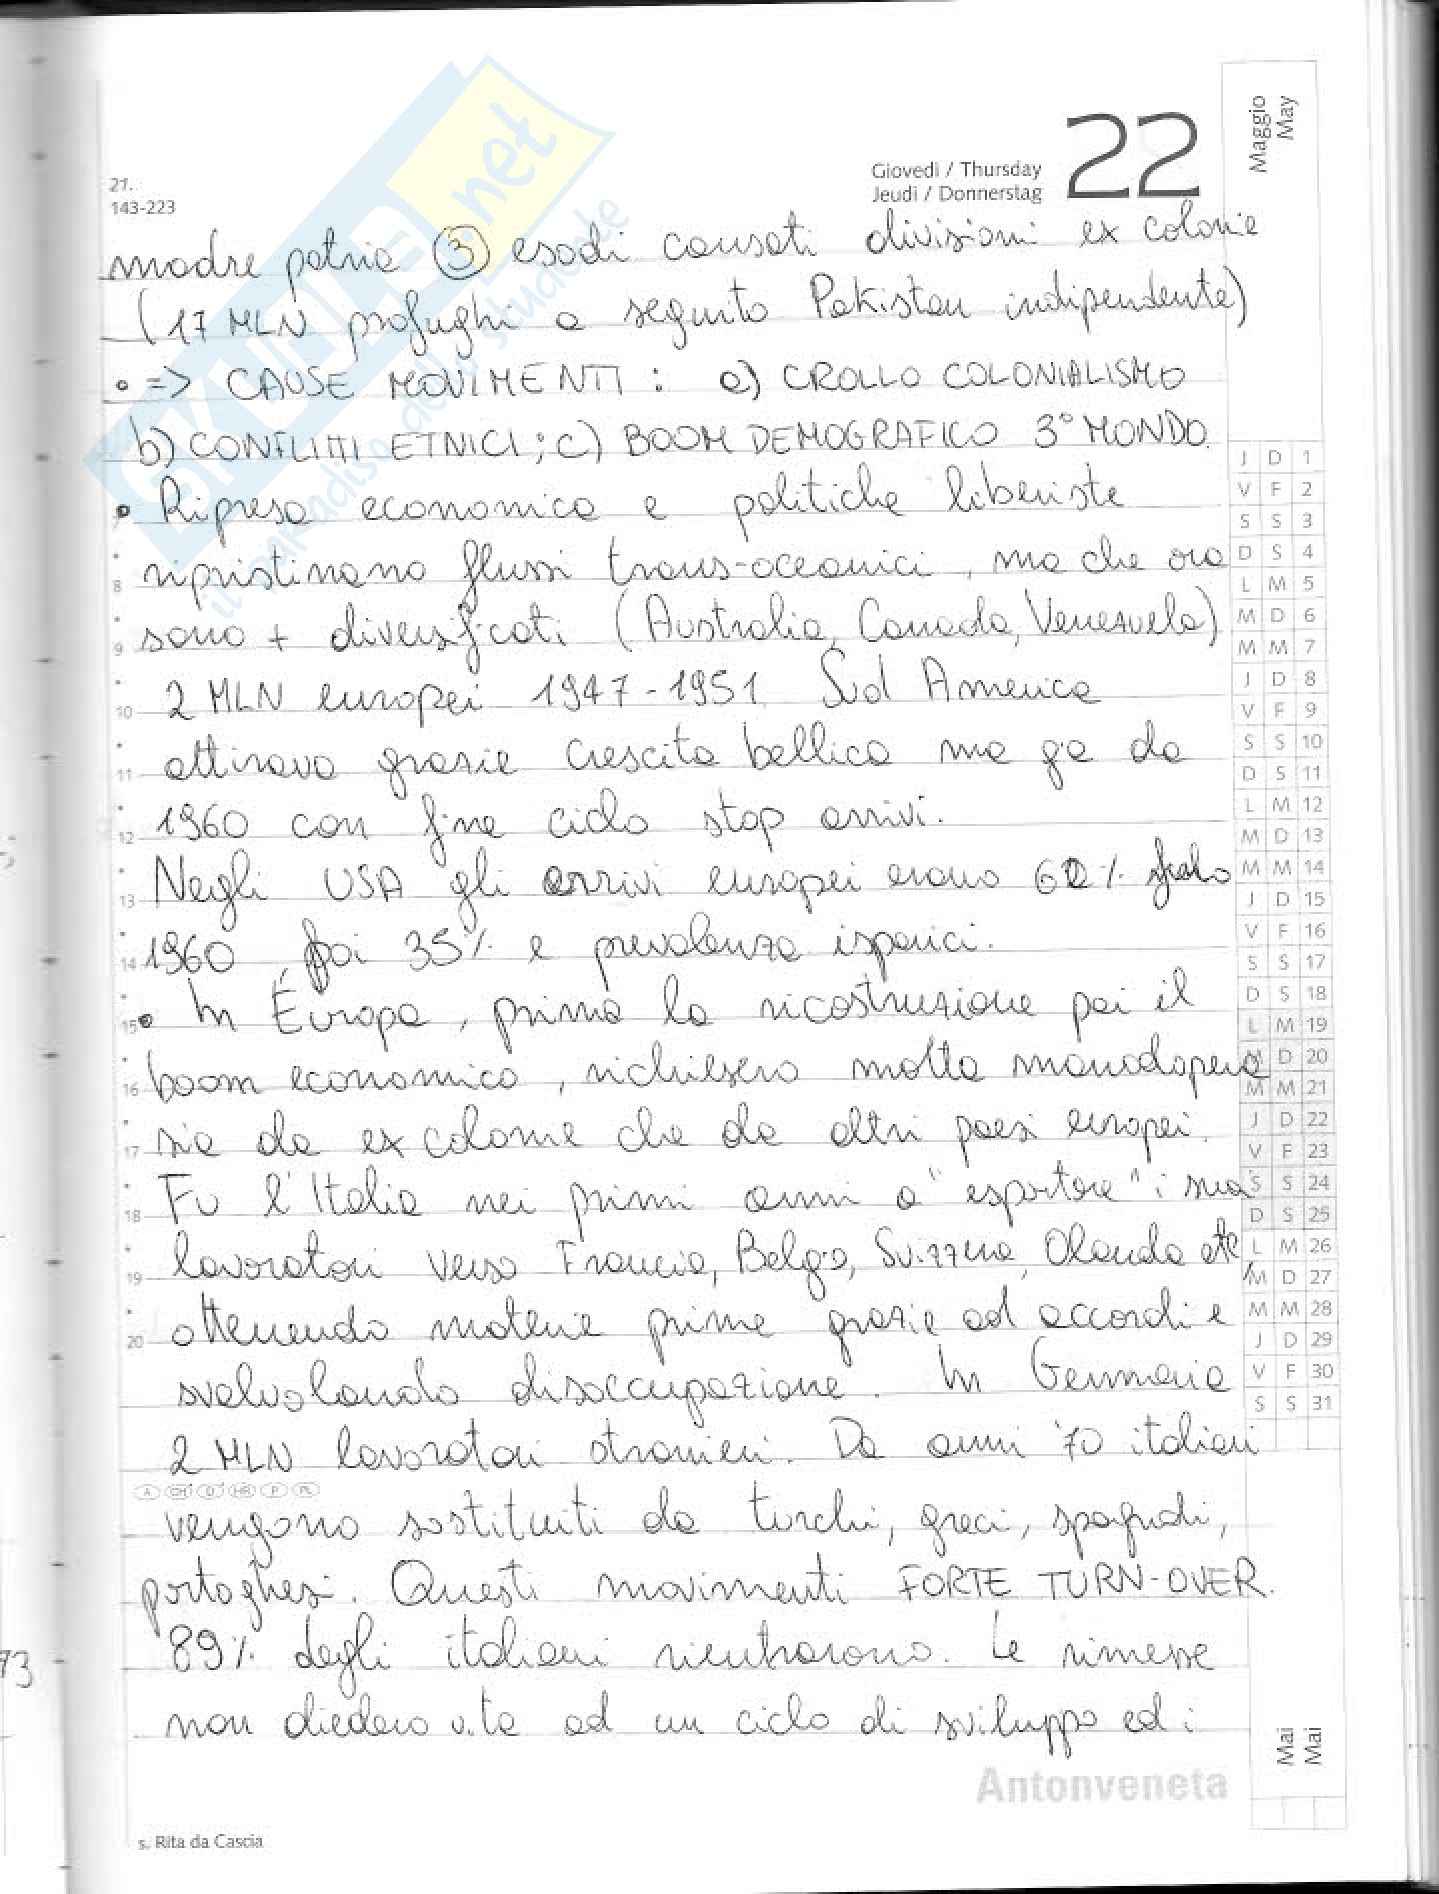 Maggio
May
22
Giovedì / Thursday
Jeudi / Donnerstag
21.
143-223
SKUOLA.net
il paradiso dello studente
madre patria ③ esodi causati divisioni ex colonie
(17 MLN profughi a seguito Pakistan indipendente)
• => CAUSE MOVIMENTI : a) CROLLO COLONIALISMO
b) CONFLITTI ETNICI; c) BOOM DEMOGRAFICO 3° MONDO.
• Ripresa economica e politiche liberiste
ripristinano flussi trans-oceanici, ma che ora
sono + diversificati (Australia, Canada, Venezuela)
2 MLN europei 1947-1951 Sud America
attirava grazie crescita bellica ma già da
1960 con fine ciclo stop arrivi.
Negli USA gli arrivi europei erano 60% fino
1960, poi 35% e prevalenza ispanici.
• In Europa, prima la ricostruzione poi il
boom economico, richiesero molta manodopera
sia da ex colonie che da altri paesi europei.
Fu l'Italia nei primi anni a "esportare" i suoi
lavoratori verso Francia, Belgio, Svizzera, Olanda etc,
ottenendo materie prime grazie ad accordi e
svalvolando disoccupazione. In Germania
2 MLN lavoratori stranieri. Da anni '70 italiani
vengono sostituiti da turchi, greci, spagnoli,
portoghesi. Questi movimenti FORTE TURN-OVER.
89% degli italiani rientrarono. Le rimesse
non diedero vita ad un ciclo di sviluppo ed i
8
9
10
11
12
13
14
15
16
17
18
19
20
A CH D HR P PL
J D 1
V F 2
S S 3
D S 4
L M 5
M D 6
M M 7
J D 8
V F 9
S S 10
D S 11
L M 12
M D 13
M M 14
J D 15
V F 16
S S 17
D S 18
L M 19
M D 20
M M 21
J D 22
V F 23
S S 24
D S 25
L M 26
M D 27
M M 28
J D 29
V F 30
S S 31
73
Mai
Mai
Antonveneta
s. Rita da Cascia